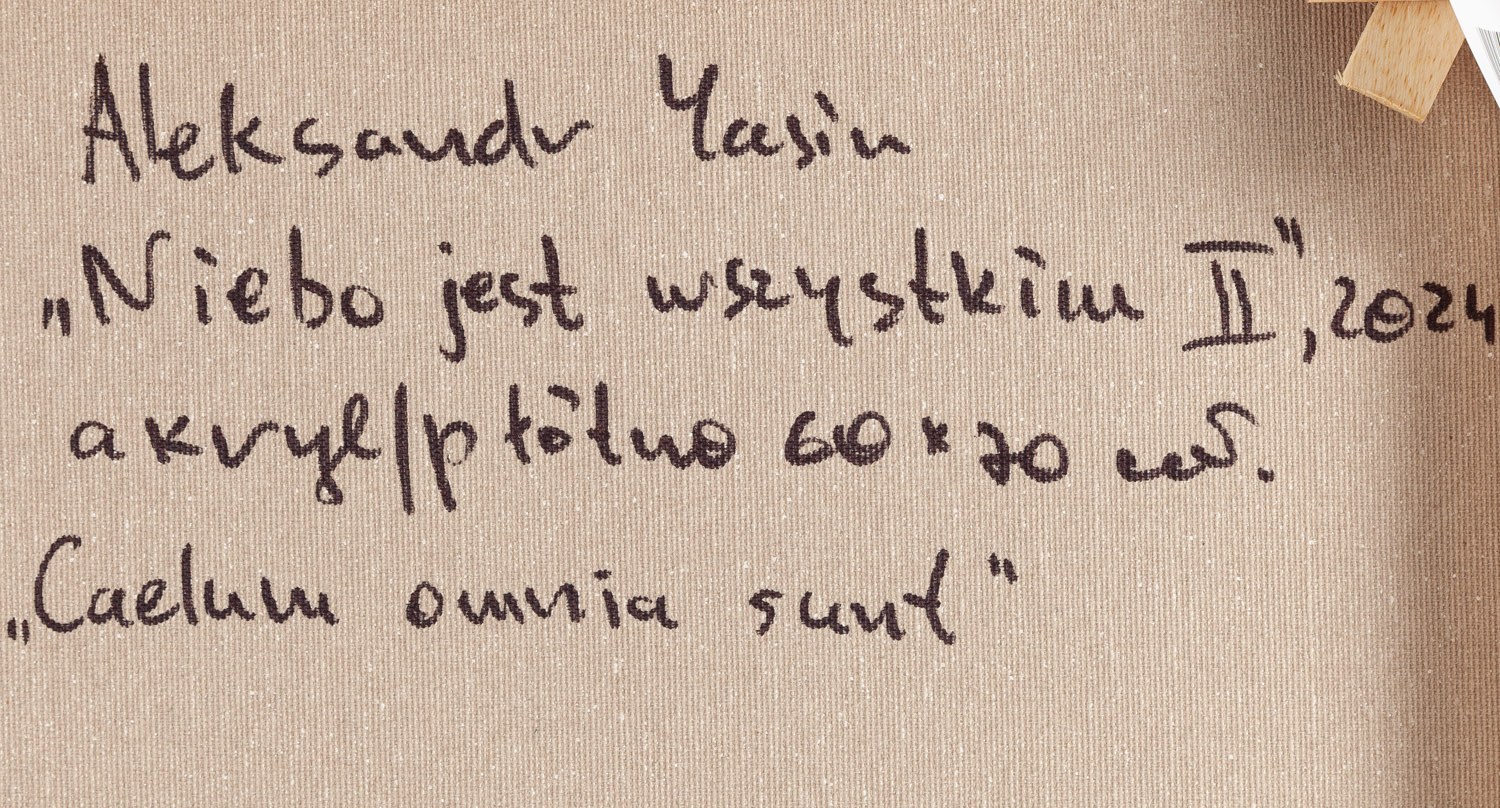 Aleksandr Yasin
„Niebo jest wszystkim II”, 2024
akryl/płótno 60×70 cm.
„Caelum omnia sunt”